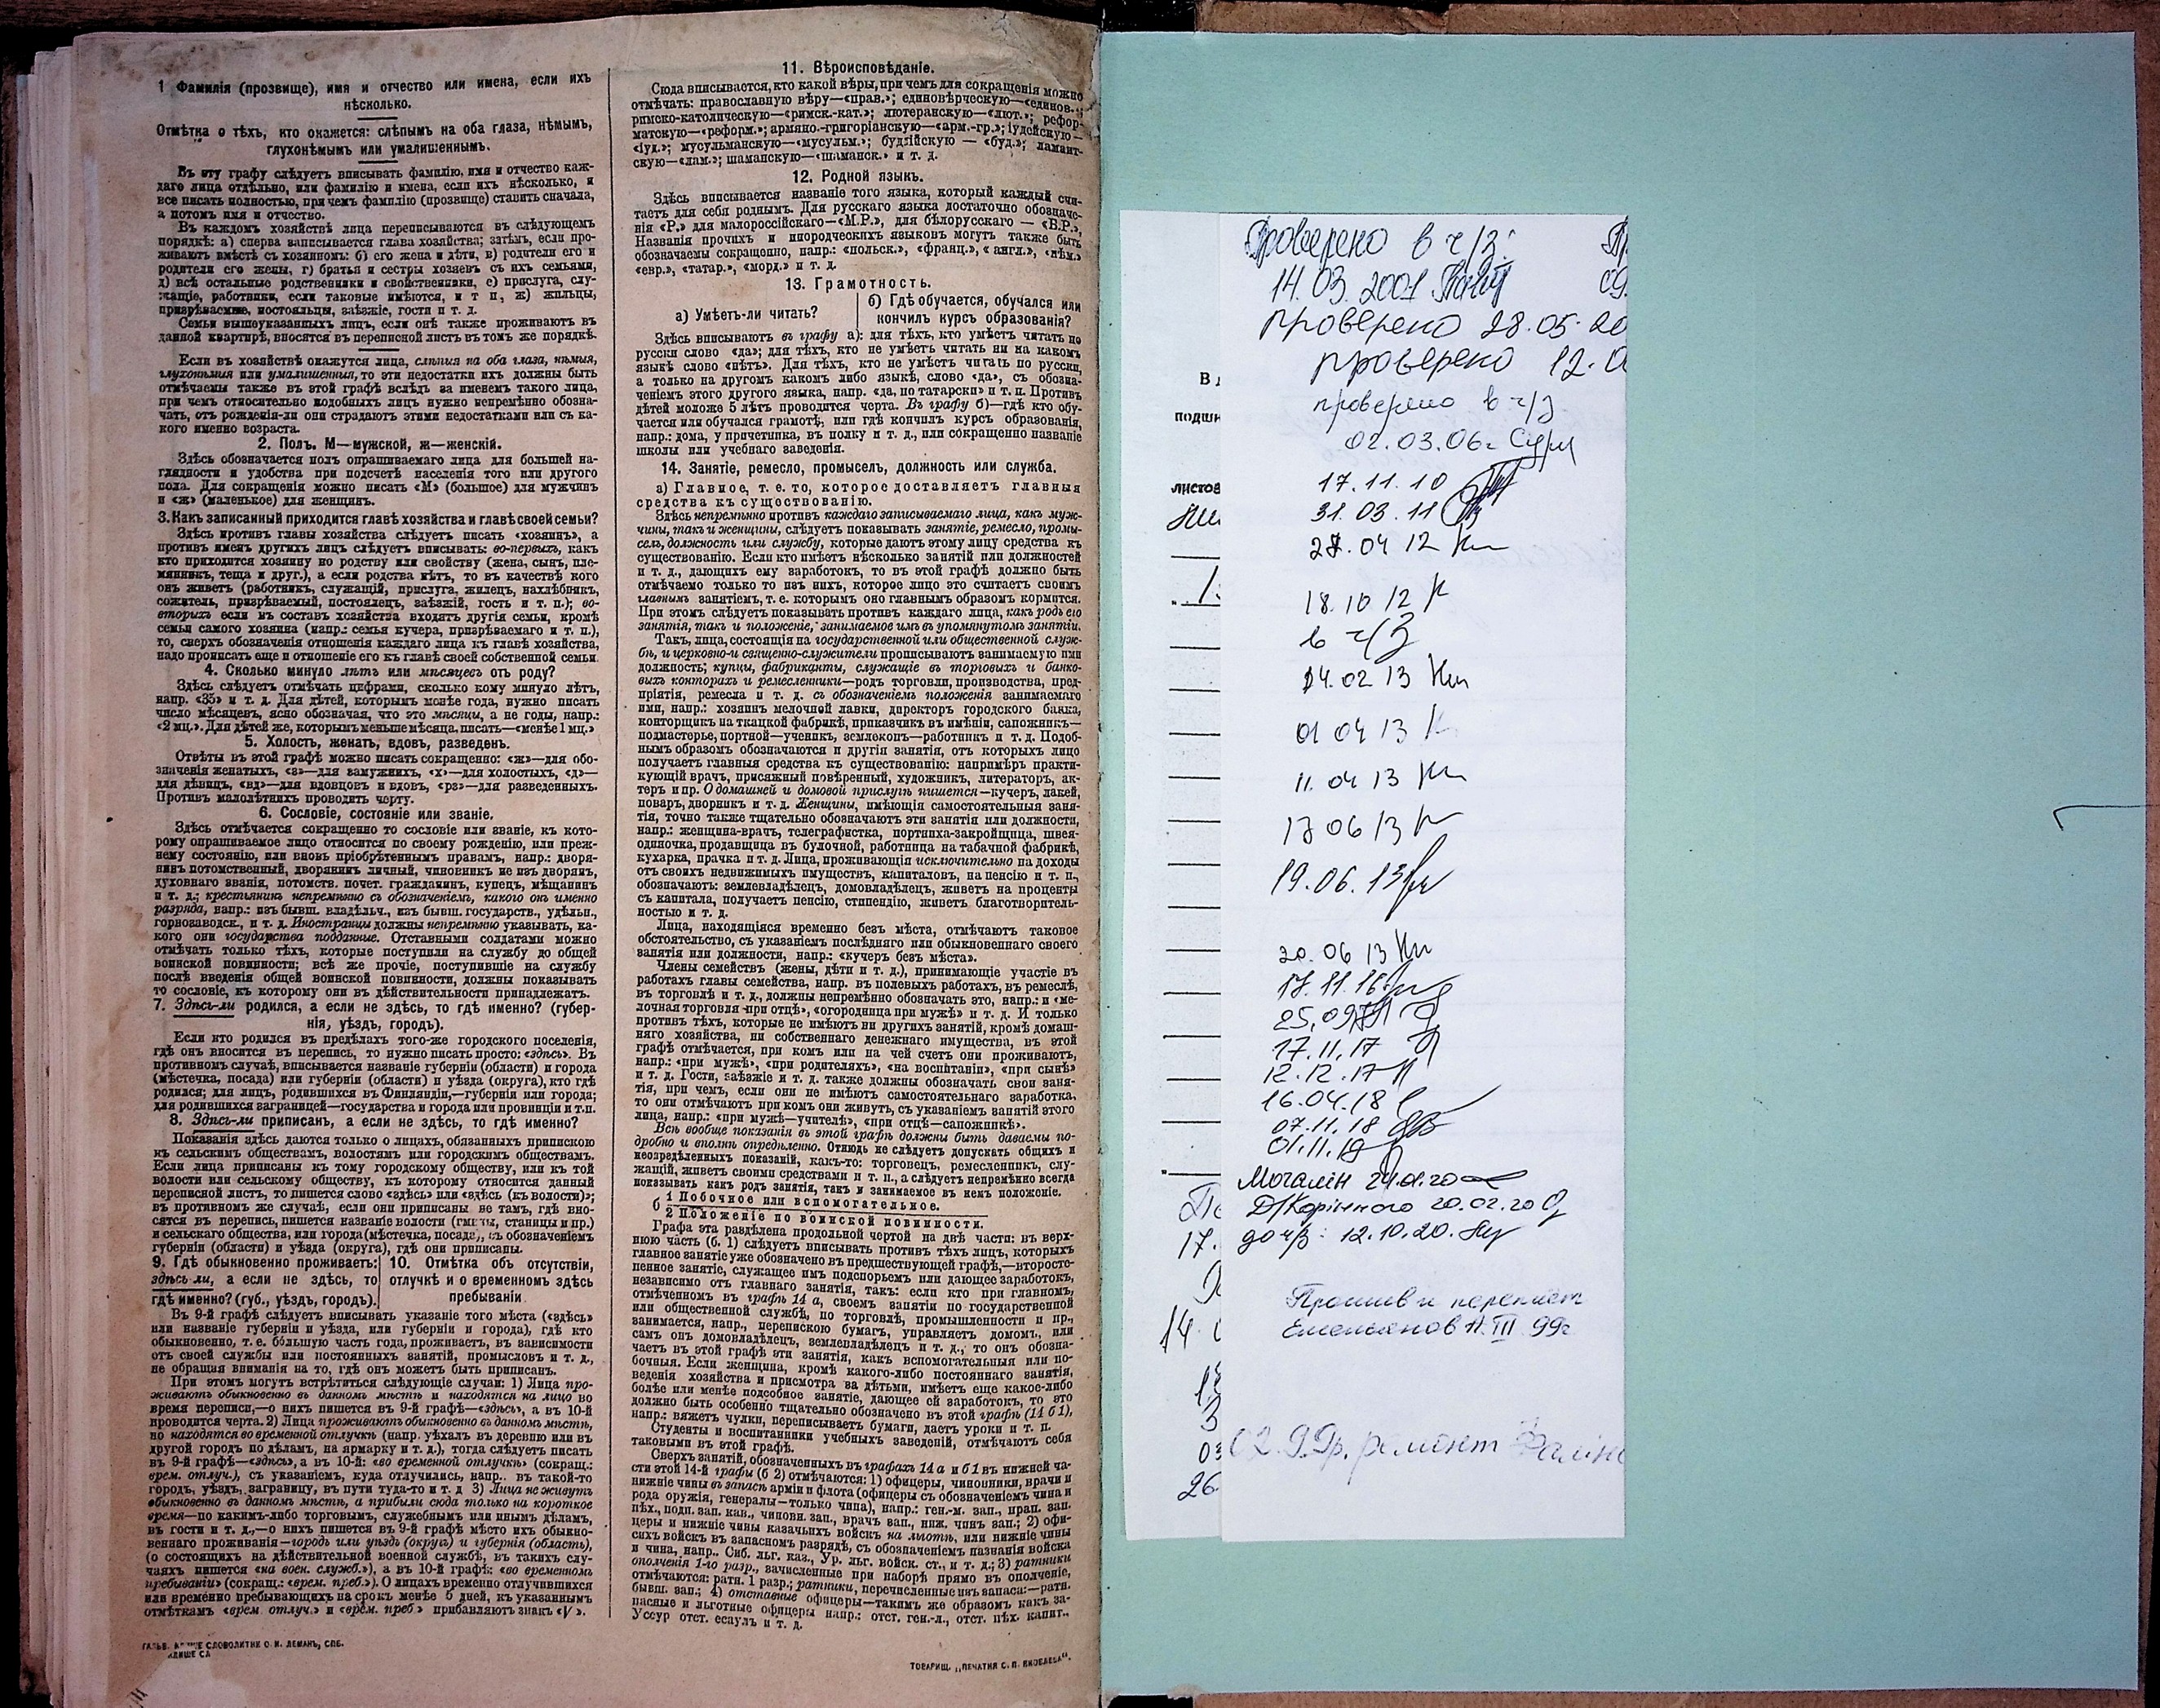 1 Фамилія (прозвище), имя и отчество или имена, если ихъ
нѣсколько.
Отмѣтка о тѣхъ, кто окажется: слѣпымъ на оба глаза, нѣмымъ,
глухонѣмымъ или умалишеннымъ.
Въ эту графу слѣдуетъ вписывать фамилію, имя и отчество каж-
даго лица отдѣльно, или фамилію и имена, если ихъ нѣсколько, и
все писать полностью, при чемъ фамилію (прозвище) ставить сначала,
а потомъ имя и отчество.
Въ каждомъ хозяйствѣ лица переписываются въ слѣдующемъ
порядкѣ: а) сперва записывается глава хозяйства; затѣмъ, если про-
живаютъ вмѣстѣ съ хозяиномъ: б) его жена и дѣти, в) родители его и
родители его жены, г) братья и сестры хозяевъ съ ихъ семьями,
д) всѣ остальные родственники и свойственники, е) прислуга, слу-
жащіе, работники, если таковые имѣются, и т п, ж) жильцы,
призрѣваемые, постояльцы, заѣзжіе, гости и т. д.
Семьи вышеуказанныхъ лицъ, если онѣ также проживаютъ въ
данной квартирѣ, вносятся въ переписной листъ въ томъ же порядкѣ.
Если въ хозяйствѣ окажутся лица, слѣпыя на оба глаза, нѣмыя,
глухонѣмыя или умалишенныя, то эти недостатки ихъ должны быть
отмѣчаемы также въ этой графѣ вслѣдъ за именемъ такого лица,
при чемъ относительно подобныхъ лицъ нужно непремѣнно обозна-
чать, отъ рожденія-ли они страдаютъ этими недостатками или съ ка-
кого именно возраста.
2. Полъ. М—мужской, ж—женскій.
Здѣсь обозначается полъ опрашиваемаго лица для большей на-
глядности и удобства при подсчетѣ населенія того или другого
пола. Для сокращенія можно писать «М» (большое) для мужчинъ
и «ж» (маленькое) для женщинъ.
3. Какъ записанный приходится главѣ хозяйства и главѣ своей семьи?
Здѣсь противъ главы хозяйства слѣдуетъ писать «хозяинъ», а
противъ именъ другихъ лицъ слѣдуетъ вписывать: во-первыхъ, какъ
кто приходится хозяину по родству или свойству (жена, сынъ, пле-
мянникъ, теща и друг.), а если родства нѣтъ, то въ качествѣ кого
онъ живетъ (работникъ, служащій, прислуга, жилецъ, нахлѣбникъ,
сожитель, призрѣваемый, постоялецъ, заѣзжій, гость и т. п.); во-
вторыхъ если въ составъ хозяйства входятъ другія семьи, кромѣ
семьи самого хозяина (напр.: семья кучера, призрѣваемаго и т. п.),
то, сверхъ обозначенія отношенія каждаго лица къ главѣ хозяйства,
надо прописать еще и отношеніе его къ главѣ своей собственной семьи.
4. Сколько минуло лѣтъ или мѣсяцевъ отъ роду?
Здѣсь слѣдуетъ отмѣчать цифрами, сколько кому минуло лѣтъ,
напр. «35» и т. д. Для дѣтей, которымъ менѣе года, нужно писать
число мѣсяцевъ, ясно обозначая, что это мѣсяцы, а не годы, напр.:
«2 мц.». Для дѣтей же, которымъ меньше мѣсяца, писать—«менѣе 1 мц.»
5. Холостъ, женатъ, вдовъ, разведенъ.
Отвѣты въ этой графѣ можно писать сокращенно: «ж»—для обо-
значенія женатыхъ, «з»—для замужнихъ, «х»—для холостыхъ, «д»—
для дѣвицъ, «вд»—для вдовцовъ и вдовъ, «рз»—для разведенныхъ.
Противъ малолѣтнихъ проводить черту.
6. Сословіе, состояніе или званіе.
Здѣсь отмѣчается сокращенно то сословіе или званіе, къ кото-
рому опрашиваемое лицо относится по своему рожденію, или преж-
нему состоянію, или вновь пріобрѣтеннымъ правамъ, напр.: дворя-
нинъ потомственный, дворянинъ личный, чиновникъ не изъ дворянъ,
духовнаго званія, потомств. почет. гражданинъ, купецъ, мѣщанинъ
и т. д.; крестьянинъ непремѣнно съ обозначеніемъ, какого онъ именно
разряда, напр.: изъ бывш. владѣльч., изъ бывш. государств., удѣльн.,
горнозаводск., и т. д. Иностранцы должны непремѣнно указывать, ка-
кого они государства подданные. Отставными солдатами можно
отмѣчать только тѣхъ, которые поступили на службу до общей
воинской повинности; всѣ же прочіе, поступившіе на службу
послѣ введенія общей воинской повинности, должны показывать
то сословіе, къ которому они въ дѣйствительности принадлежатъ.
7. Здѣсь-ли родился, а если не здѣсь, то гдѣ именно? (губер-
нія, уѣздъ, городъ).
Если кто родился въ предѣлахъ того-же городского поселенія,
гдѣ онъ вносится въ перепись, то нужно писать просто: «здѣсь». Въ
противномъ случаѣ, вписывается названіе губерніи (области) и города
(мѣстечка, посада) или губерніи (области) и уѣзда (округа), кто гдѣ
родился; для лицъ, родившихся въ Финляндіи,—губерніи или города;
для родившихся заграницей—государства и города или провинціи и т.п.
8. Здѣсь-ли приписанъ, а если не здѣсь, то гдѣ именно?
Показанія здѣсь даются только о лицахъ, обязанныхъ припискою
къ сельскимъ обществамъ, волостямъ или городскимъ обществамъ.
Если лица приписаны къ тому городскому обществу, или къ той
волости или сельскому обществу, къ которому относится данный
переписной листъ, то пишется слово «здѣсь» или «здѣсь (къ волости)»;
въ противномъ же случаѣ, если они приписаны не тамъ, гдѣ вно-
сятся въ перепись, пишется названіе волости (гмины, станицы и пр.)
и сельскаго общества, или города (мѣстечка, посада), съ обозначеніемъ
губерніи (области) и уѣзда (округа), гдѣ они приписаны.
9. Гдѣ обыкновенно проживаетъ:
здѣсь-ли, а если не здѣсь, то
гдѣ именно? (губ., уѣздъ, городъ).
10. Отмѣтка объ отсутствіи,
отлучкѣ и о временномъ здѣсь
пребываніи.
Въ 9-й графѣ слѣдуетъ вписывать указаніе того мѣста («здѣсь»
или названіе губерніи и уѣзда, или губерніи и города), гдѣ кто
обыкновенно, т. е. бо́льшую часть года, проживаетъ, въ зависимости
отъ своей службы или постоянныхъ занятій, промысловъ и т. д.,
не обращая вниманія на то, гдѣ онъ можетъ быть приписанъ.
При этомъ могутъ встрѣтиться слѣдующіе случаи: 1) Лица про-
живаютъ обыкновенно въ данномъ мѣстѣ и находятся на лицо во
время переписи,—о нихъ пишется въ 9-й графѣ—«здѣсь», а въ 10-й
проводится черта. 2) Лица проживаютъ обыкновенно въ данномъ мѣстѣ,
но находятся во временной отлучкѣ (напр. уѣхалъ въ деревню или въ
другой городъ по дѣламъ, на ярмарку и т. д.), тогда слѣдуетъ писать
въ 9-й графѣ—«здѣсь», а въ 10-й: «во временной отлучкѣ» (сокращ.:
врем. отлуч.), съ указаніемъ, куда отлучились, напр.. въ такой-то
городъ, уѣздъ, заграницу, въ пути туда-то и т. д 3) Лица не живутъ
обыкновенно въ данномъ мѣстѣ, а прибыли сюда только на короткое
время—по какимъ-либо торговымъ, служебнымъ или инымъ дѣламъ,
въ гости и т. д.,—о нихъ пишется въ 9-й графѣ мѣсто ихъ обыкно-
веннаго проживанія—городъ или уѣздъ (округъ) и губернія (область),
(о состоящихъ на дѣйствительной военной службѣ, въ такихъ слу-
чаяхъ пишется «на воен. служб.»), а въ 10-й графѣ: «во временномъ
пребываніи» (сокращ.: «врем. преб.»). О лицахъ временно отлучившихся
или временно пребывающихъ на срокъ менѣе 5 дней, къ указаннымъ
отмѣткамъ «врем. отлуч.» и «врем. преб.» прибавляютъ знакъ «V».
СЛОВОЛИТНИ О. И. ЛЕМАНЪ, СПБ.
11. Вѣроисповѣданіе.
Сюда вписывается, кто какой вѣры, при чемъ для сокращенія можно
отмѣчать: православную вѣру—«прав.»; единовѣрческую—«единов.»;
римско-католическую—«римск.-кат.»; лютеранскую—«лют.»; рефор-
матскую—«реформ.»; армяно.-григоріанскую—«арм.-гр.»; іудейскую—
«іуд.»; мусульманскую—«мусульм.»; буддійскую — «буд.»; ламаит-
скую—«лам.»; шаманскую—«шаманск.» и т. д.
12. Родной языкъ.
Здѣсь вписывается названіе того языка, который каждый счи-
таетъ для себя роднымъ. Для русскаго языка достаточно обозначе-
нія «Р.» для малороссійскаго—«М.Р.», для бѣлорусскаго — «Б.Р.»,
Названія прочихъ и инородческихъ языковъ могутъ также быть
обозначаемы сокращенно, напр.: «польск.», «франц.», «англ.», «нѣм.»
«евр.», «татар.», «морд.» и т. д.
13. Грамотность.
а) Умѣетъ-ли читать?
б) Гдѣ обучается, обучался или
кончилъ курсъ образованія?
Здѣсь вписываютъ въ графу а): для тѣхъ, кто умѣетъ читать по
русски слово «да»; для тѣхъ, кто не умѣетъ читать ни на какомъ
языкѣ слово «нѣтъ». Для тѣхъ, кто не умѣетъ читать по русски,
а только на другомъ какомъ либо языкѣ, слово «да», съ обозна-
ченіемъ этого другого языка, напр. «да, по татарски» и т. п. Противъ
дѣтей моложе 5 лѣтъ проводится черта. Въ графу б)—гдѣ кто обу-
чается или обучался грамотѣ, или гдѣ кончилъ курсъ образованія,
напр.: дома, у причетника, въ полку и т. д., или сокращенно названіе
школы или учебнаго заведенія.
14. Занятіе, ремесло, промыселъ, должность или служба.
а) Главное, т. е. то, которое доставляетъ главныя
средства къ существованію.
Здѣсь непремѣнно противъ каждаго записываемаго лица, какъ муж-
чины, такъ и женщины, слѣдуетъ показывать занятіе, ремесло, промы-
селъ, должность или службу, которые даютъ этому лицу средства къ
существованію. Если кто имѣетъ нѣсколько занятій или должностей
и т. д., дающихъ ему заработокъ, то въ этой графѣ должно быть
отмѣчаемо только то изъ нихъ, которое лицо это считаетъ своимъ
главнымъ занятіемъ, т. е. которымъ оно главнымъ образомъ кормится.
При этомъ слѣдуетъ показывать противъ каждаго лица, какъ родъ его
занятія, такъ и положеніе, занимаемое имъ въ упомянутомъ занятіи.
Такъ, лица, состоящія на государственной или общественной служ-
бѣ, и церковно-и священно-служители прописываютъ занимаемую ими
должность; купцы, фабриканты, служащіе въ торговыхъ и банко-
выхъ конторахъ и ремесленники—родъ торговли, производства, пред-
пріятія, ремесла и т. д. съ обозначеніемъ положенія занимаемаго
ими, напр.: хозяинъ мелочной лавки, директоръ городского банка,
конторщикъ на ткацкой фабрикѣ, приказчикъ въ имѣніи, сапожникъ—
подмастерье, портной—ученикъ, землекопъ—работникъ и т. д. Подоб-
нымъ образомъ обозначаются и другія занятія, отъ которыхъ лицо
получаетъ главныя средства къ существованію: напримѣръ практи-
кующій врачъ, присяжный повѣренный, художникъ, литераторъ, ак-
теръ и пр. О домашней и домовой прислугѣ пишется—кучеръ, лакей,
поваръ, дворникъ и т. д. Женщины, имѣющія самостоятельныя заня-
тія, точно также тщательно обозначаютъ эти занятія или должности,
напр.: женщина-врачъ, телеграфистка, портниха-закройщица, швея-
одиночка, продавщица въ булочной, работница на табачной фабрикѣ,
кухарка, прачка и т. д. Лица, проживающія исключительно на доходы
отъ своихъ недвижимыхъ имуществъ, капиталовъ, на пенсію и т. п.,
обозначаютъ: землевладѣлецъ, домовладѣлецъ, живетъ на проценты
съ капитала, получаетъ пенсію, стипендію, живетъ благотворитель-
ностью и т. д.
Лица, находящіяся временно безъ мѣста, отмѣчаютъ таковое
обстоятельство, съ указаніемъ послѣдняго или обыкновеннаго своего
занятія или должности, напр.: «кучеръ безъ мѣста».
Члены семействъ (жены, дѣти и т. д.), принимающіе участіе въ
работахъ главы семейства, напр. въ полевыхъ работахъ, въ ремеслѣ,
въ торговлѣ и т. д., должны непремѣнно обозначать это, напр.: и «ме-
лочная торговля при отцѣ», «огородница при мужѣ» и т. д. И только
противъ тѣхъ, которые не имѣютъ ни другихъ занятій, кромѣ домаш-
няго хозяйства, ни собственнаго денежнаго имущества, въ этой
графѣ отмѣчается, при комъ или на чей счетъ они проживаютъ,
напр.: «при мужѣ», «при родителяхъ», «на воспитаніи», «при сынѣ»
и т. д. Гости, заѣзжіе и т. д. также должны обозначать свои заня-
тія, при чемъ, если они не имѣютъ самостоятельнаго заработка,
то они отмѣчаютъ при комъ они живутъ, съ указаніемъ занятій этого
лица, напр.: «при мужѣ—учителѣ», «при отцѣ—сапожникѣ».
Всѣ вообще показанія въ этой графѣ должны быть даваемы по-
дробно и вполнѣ опредѣленно. Отнюдь не слѣдуетъ допускать общихъ и
неопредѣленныхъ показаній, какъ-то: торговецъ, ремесленникъ, слу-
жащій, живетъ своими средствами и т. п., а слѣдуетъ непремѣнно всегда
показывать какъ родъ занятія, такъ и занимаемое въ немъ положеніе.
б 1 Побочное или вспомогательное.
2 Положеніе по воинской повинности.
Графа эта раздѣлена продольной чертой на двѣ части: въ верх-
нюю часть (б. 1) слѣдуетъ вписывать противъ тѣхъ лицъ, которыхъ
главное занятіе уже обозначено въ предшествующей графѣ,—второсте-
пенное занятіе, служащее имъ подспорьемъ или дающее заработокъ,
независимо отъ главнаго занятія, такъ: если кто при главномъ,
отмѣченномъ въ графѣ 14 а, своемъ занятіи по государственной
или общественной службѣ, по торговлѣ, промышленности и пр.,
занимается, напр., перепискою бумагъ, управляетъ домомъ, или
самъ онъ домовладѣлецъ, землевладѣлецъ и т. д., то онъ обозна-
чаетъ въ этой графѣ эти занятія, какъ вспомогательныя или по-
бочныя. Если женщина, кромѣ какого-либо постояннаго занятія,
веденія хозяйства и присмотра за дѣтьми, имѣетъ еще какое-либо
болѣе или менѣе подсобное занятіе, дающее ей заработокъ, то это
должно быть особенно тщательно обозначено въ этой графѣ (14 б 1),
напр.: вяжетъ чулки, переписываетъ бумаги, даетъ уроки и т. п.
Студенты и воспитанники учебныхъ заведеній, отмѣчаютъ себя
таковыми въ этой графѣ.
Сверхъ занятій, обозначенныхъ въ графахъ 14 а и б 1 въ нижней ча-
сти этой 14-й графы (б 2) отмѣчаются: 1) офицеры, чиновники, врачи и
нижніе чины въ запасѣ арміи и флота (офицеры съ обозначеніемъ чина и
рода оружія, генералы—только чина), напр.: ген.-м. зап., прап. зап.
пѣх., подп. зап. кав., чиновн. зап., врачъ зап., ниж. чинъ зап.; 2) офи-
церы и нижніе чины казачьихъ войскъ на льготѣ, или нижніе чины
сихъ войскъ въ запасномъ разрядѣ, съ обозначеніемъ названія войска
и чина, напр., Сиб. льг. каз., Ур. льг. войск. ст., и т. д.; 3) ратники
ополченія 1-го разр., зачисленные при наборѣ прямо въ ополченіе,
отмѣчаются: ратн. 1 разр.; ратники, перечисленные изъ запаса:—ратн.
бывш. зап.; 4) отставные офицеры—такимъ же образомъ какъ за-
пасные и льготные офицеры напр.: отст. ген.-л., отст. пѣх. капит.,
Уссур отст. есаулъ и т. д.
ТОВАРИЩ. „ПЕЧАТНЯ С. П. ЯКОВЛЕВА“.
В д
подши
листов
17.
14.
03
26
Проверено в ч/з:
14.03.2001
проверено 28.05.20
проверено 12.0
проверено в ч/з
02.03.06г
17.11.10
31.03.11
27.04 12
18.10 12
в ч/з
14.02 13
01 04 13
11.04 13
17 06 13
19.06.13
20.06 13
17.11.16
25.09.
17.11.17
12.12.17
16.04.18
07.11.18
01.11.19
Мочалін 24.01.20
Д/Корінного 20.02.20
до ч/з: 12.10.20.
Прошив и переплет
Емельянов А. III 99г
ремонт